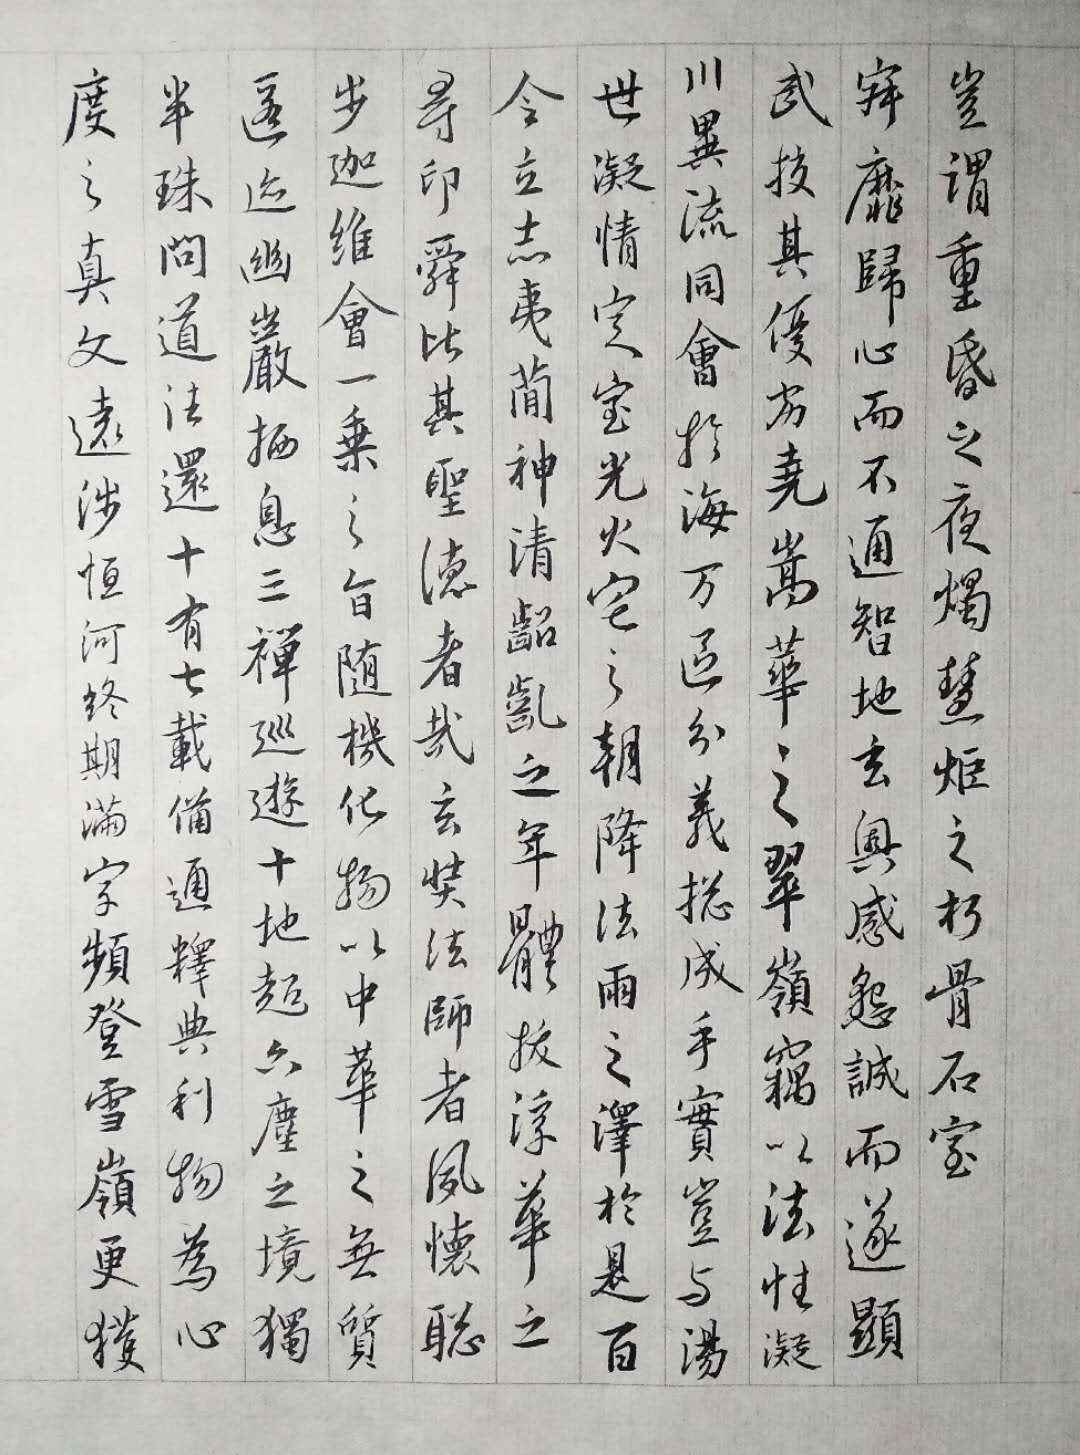 豈謂重昏之夜燭慧炬之朽骨石室
寂靡歸心而不通智地玄奧感懇誠而遂顯
武技其優劣堯嵩華之翠嶺竊以法性凝
川異流同會於海万區分義揔成乎實豈与湯
世凝情定室光火宅之朝降法雨之澤於是百
令立志夷蕳神清齠齓之年體拔浮華之
尋印舜比其聖德者哉玄奘法師者夙懷聡
步迦維會一乗之旨随機化物以中華之無質
匿迹幽巖栖息三禪巡遊十地超六塵之境獨
半珠問道法還十有七載備通釋典利物為心
度之真文遠涉恒河終期滿字頻登雪嶺更獲